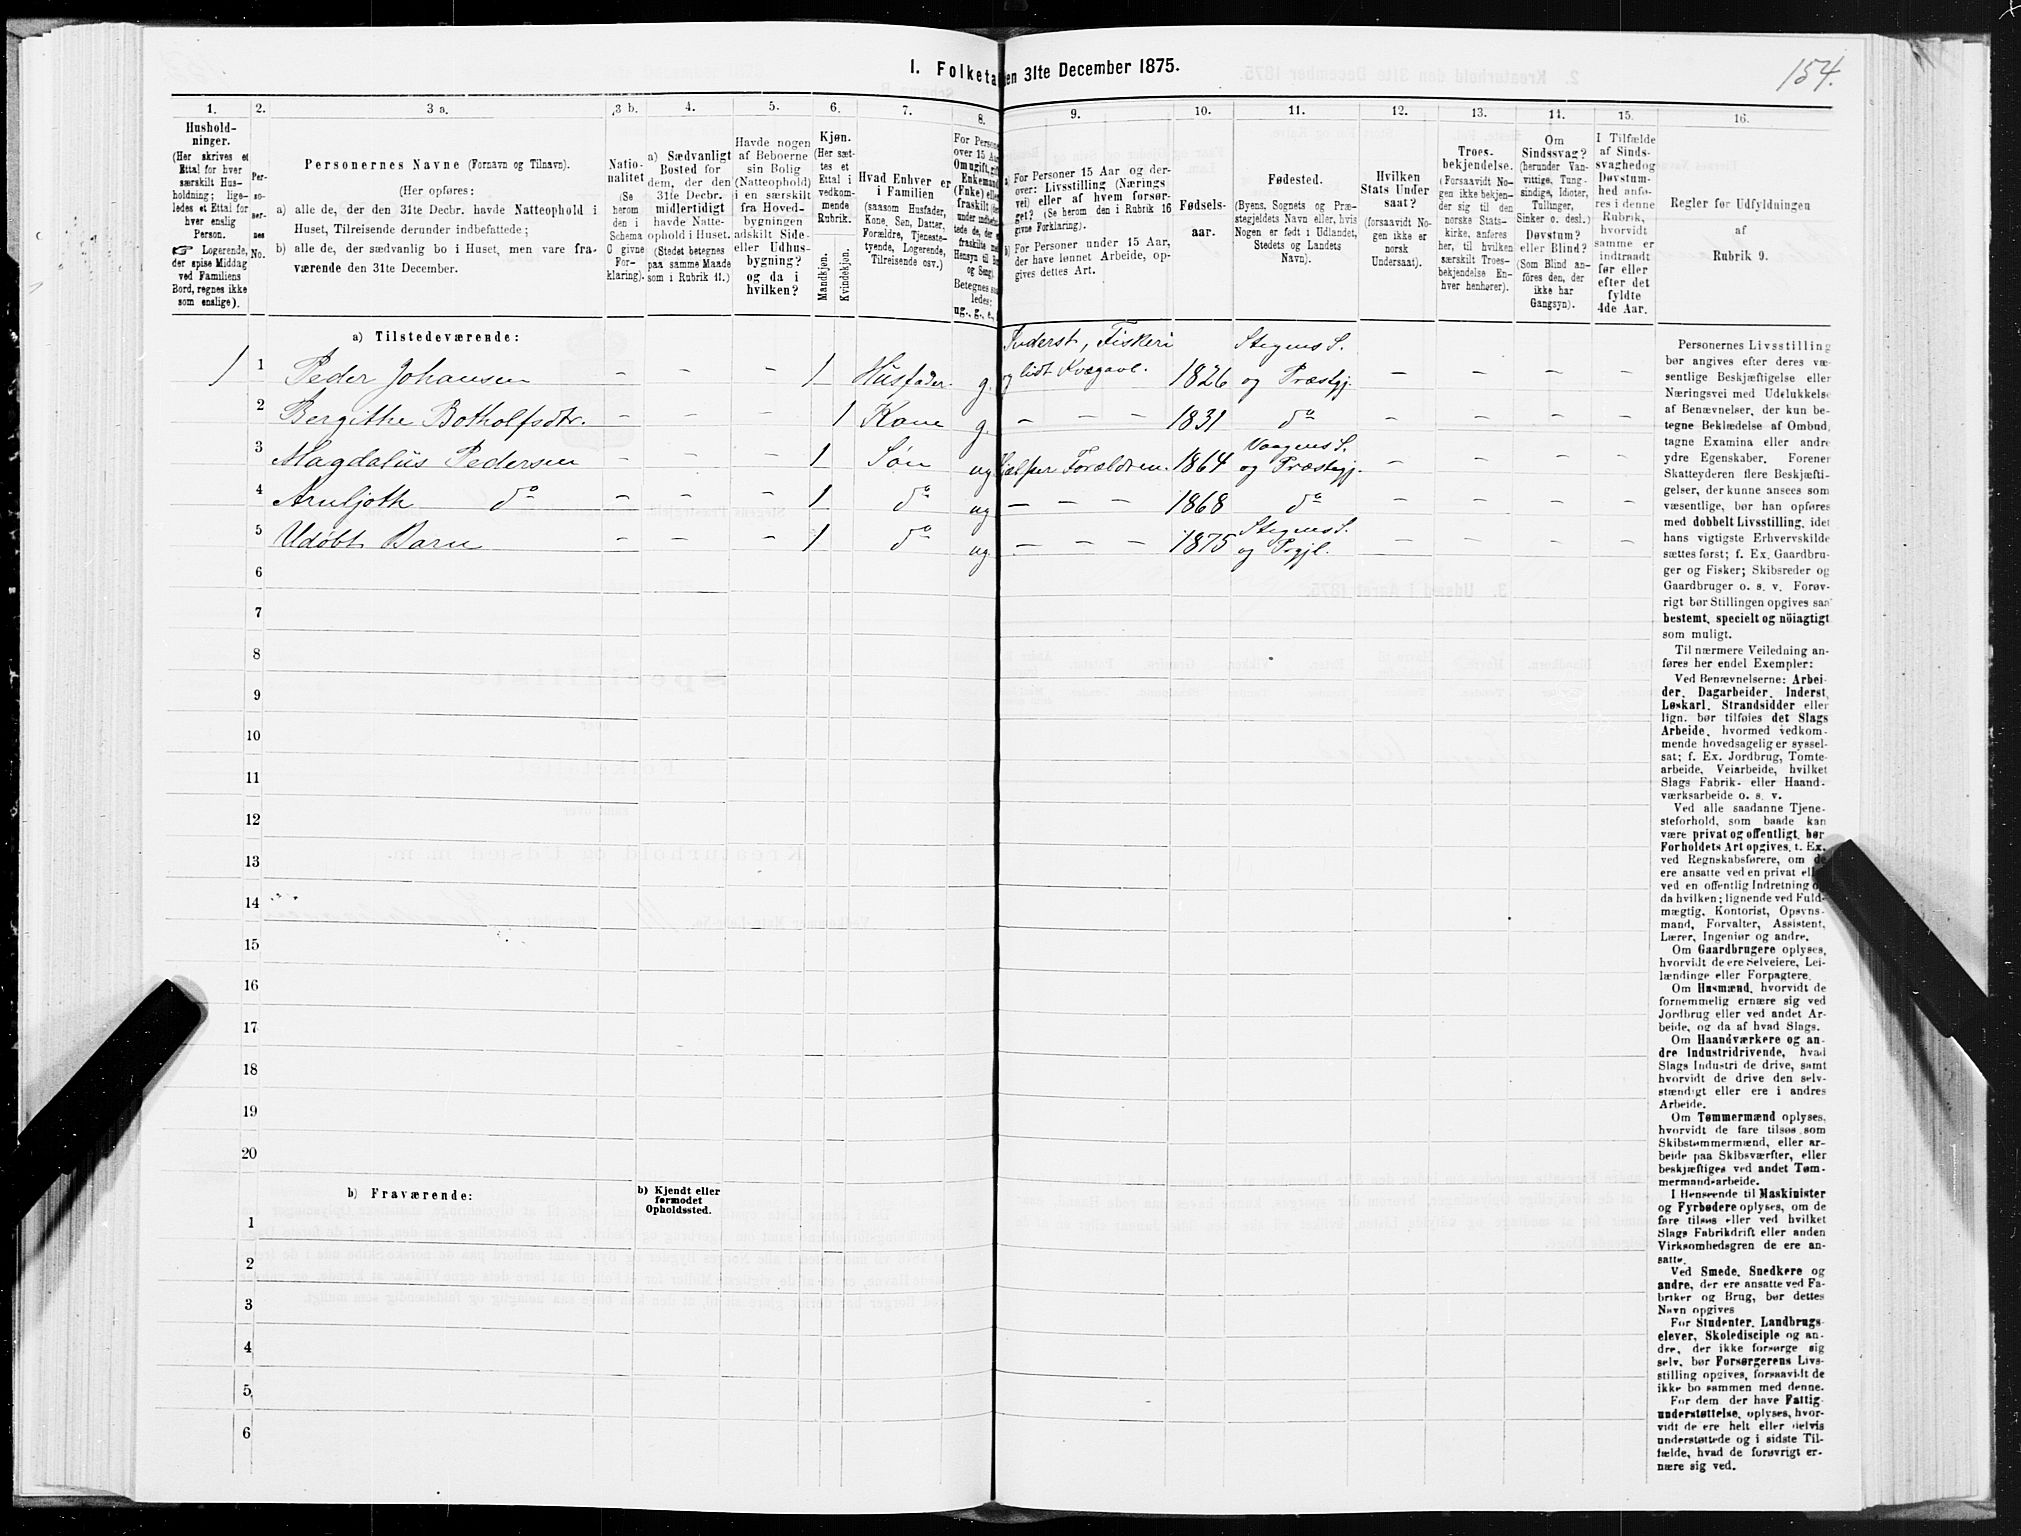 154.
I. Folketa en 31te December 1875.
1. 2. 3 a. 3 b. 4. 5. 6. 7. 8. 9. 10. 11. 12. 13. 14. 15. 16.
Hushold-
ninger.
(Her skrives et
Ettal for hver
særskilt Hus-
holdning; lige-
ledes et Ettal for
hver enslig
Person.
☞ Logerende,
der spise Middag
ved Familiens
Bord, regnes ikke
som enslige).
Per-
so-
ner-
nes
No.
Personernes Navne (Fornavn og Tilnavn).
(Her opføres:
a) alle de, der den 31te Decbr. havde Natteophold i
Huset, Tilreisende derunder indbefattede;
b) alle de, der sædvanlig bo i Huset, men vare fra-
værende den 31te December.
Natio-
nalitet
(Se
herom
den i
Schema
O givne
For-
klaring).
a) Sædvanligt
Bosted for
dem, der den
31te Decbr.
midlertidigt
havde Natte-
ophold i Huset.
(Stedet betegnes
paa samme Maade
som i Rubrik 11.)
Havde nogen
af Beboerne
sin Bolig
(Natteophold)
i en særskilt
fra Hoved-
bygningen
adskilt Side-
eller Udhus-
bygning?
og da i
hvilken?
Kjøn.
(Her sæt-
tes et
Ettal i
vedkom-
mende
Rubrik.
Mandkjøn.
Kvindekjøn.
Hvad Enhver er
i Familien
(saasom Husfader,
Kone, Søn, Datter,
Forældre, Tjeneste-
tyende, Logerende,
Tilreisende osv.)
For Persone
over 15 Aa
Omugift, gif
Enkemand
(Enke) elle
fraskilt
Betegnes saa
ledes:
ug., g., e.,
a) For Personer 15 Aar og der-
over: Livsstilling (Nærings
vei) eller af hvem forsør-
get? (Se herom den i Rubrik 16
givne Forklaring).
b) For Personer under 15 Aar,
der have lønnet Arbeide, op-
gives dettes Art.
Fødsels-
aar.
Fødested.
(Byens, Sognets og Præ-
stegjeldets Navn eller, hvis
Nogen er født i Udlandet,
Stedets og Landets
Navn).
Hvilken
Stats Under
saat?
(forsaavidt No-
gen ikke er
norsk
Undersaat).
Troes-
bekjendelse.
(Forsaavidt No-
gen ikke bekjen-
der sig til den
norske Stats-
kirke, anføres
her, til hvilken
særskilt Troes-
bekjendelse En-
hver henhører).
Om
Sindssvag?
(herunder Van-
vittige, Tung-
sindige, Idioter,
Tullinger,
Sinker o. desl.)
Døvstum?
eller Blind?
(Som Blind an-
føres den, der
ikke har
Gangsyn).
I Tilfælde
af Sinds-
svaghed og
Døvstum-
hed anfø-
res i denne
Rubrik,
hvorvidt
samme er
indtraadt
før eller
efter det
fyldte
4de Aar.
Regler for Udfyldningen
af
Rubrik 9.
a) Tilstedeværende:
Inderst, Fiskeri Stegens S.
1 1 Peder Johansen - - - 1 Husfader. g. og lidt Kvægavl. 1826 og Præstgj. - - - -
2 Bergithe Botholfsdtr. - - - 1 Kone g. - - - 1831 do - - - -
3 Magdalus Pedersen - - - 1 Søn ug Hjælper Forældren. 1864 Vaagens S. og Præstegj. - - - -
4 Arnljoth do - - - 1 do ug - - - 1868 do - - - -
5 Udøbt Barn - - - 1 do ug - - - 1875 Stegens S. og Prgjl. - - - -
6
7
8
9
10
11
12
13
14
15
16
17
18
19
20
b) Fraværende:
b) Kjendt eller
formodet
Opholdssted.
1
2
3
4
5
6
Personernes Livsstilling
bør angives efter deres væ-
sentlige Beskjæftigelse eller
Næringsvei med Udelukkelse
af Benævnelser, der kun be-
tegne Beklædelse af Ombud,
tagne Examina eller andre
ydre Egenskaber. Forener
Skatteyderen flere Beskjæfti-
gelser, der kunne ansees som
væsentlige, bør han opføres
med dobbelt Livsstilling, idet
hans vigtigste Erhvervskilde
sættes først; f. Ex. Gaardbru-
ger og Fisker; Skibsreder og
Gaardbruger o. s. v. Forøv-
rigt bør Stillingen opgives saa
bestemt, specielt og nöiagtigt
som muligt.
Til nærmere Veiledning an-
føres her endel Exempler:
Ved Benævnelserne: Arbei-
der, Dagarbeider, Inderst,
Løskarl, Strandsidder eller
lign. bør tilføies det Slags
Arbeide, hvormed vedkom-
mende hovedsagelig er syssel-
sat; f. Ex. Jordbrug, Tomte-
arbeide, Veiarbeide, hvilket
Slags Fabrik- eller Haand-
værksarbeide o. s. v.
Ved alle saadanne Tjene-
steforhold, som baade kan
være privat og offentligt, bør
Forholdets Art opgives, f. Ex.
ved Regnskabsførere, om de
ere ansatte ved en privat ell
ved en offentlig Indretning o
da hvilken; lignende ved Fuld-
mægtig, Kontorist, Opsyns-
mand, Forvalter, Assistent,
Lærer, Ingeniør og andre.
Om Gaardbrugere oplyses,
hvorvidt de ere Selveiere, Lei-
lændinge eller Forpagtere.
Om Husmænd, hvorvidt de
fornemmelig ernære sig ved
Jordbrug eller ved andet Ar-
beide, og da af hvad Slags.
Om Haandværkere og an-
dre Industridrivende, hvad
Slags Industri de drive, samt
hvorvidt de drive den selv-
stændigt eller ere i andres
Arbeide.
Om Tømmermænd oplyses,
hvorvidt de fare tilsøs som
Skibstømmermænd, eller ar-
beide paa Skibsværfter, eller
beskjæftiges ved andet Tøm-
mermandsarbeide.
I Henseende til Maskinister
og Fyrbødere oplyses, om de
fare tilsøs eller ved hvilket
Slags Fabrikdrift eller anden
Virksomhedsgren de ere an-
satte.
Ved Smede, Snedkere og
andre, der ere ansatte ved Fa-
briker og Brug, bør dettes
Navn opgives
For Studenter, Landbrugs-
elever, Skoledisciple og an-
dre, der ikke forsørge sig
selv, bør Forsørgerens Livs-
stilling opgives, forsaavidt de
ikke bo sammen med denne.
For dem der have Fattig-
understøttelse, oplyses, hvor-
vidt de ere helt eller delvis
understøttede og i sidste Til-
fælde, hvad de forøvrigt er-
nære sig ved.